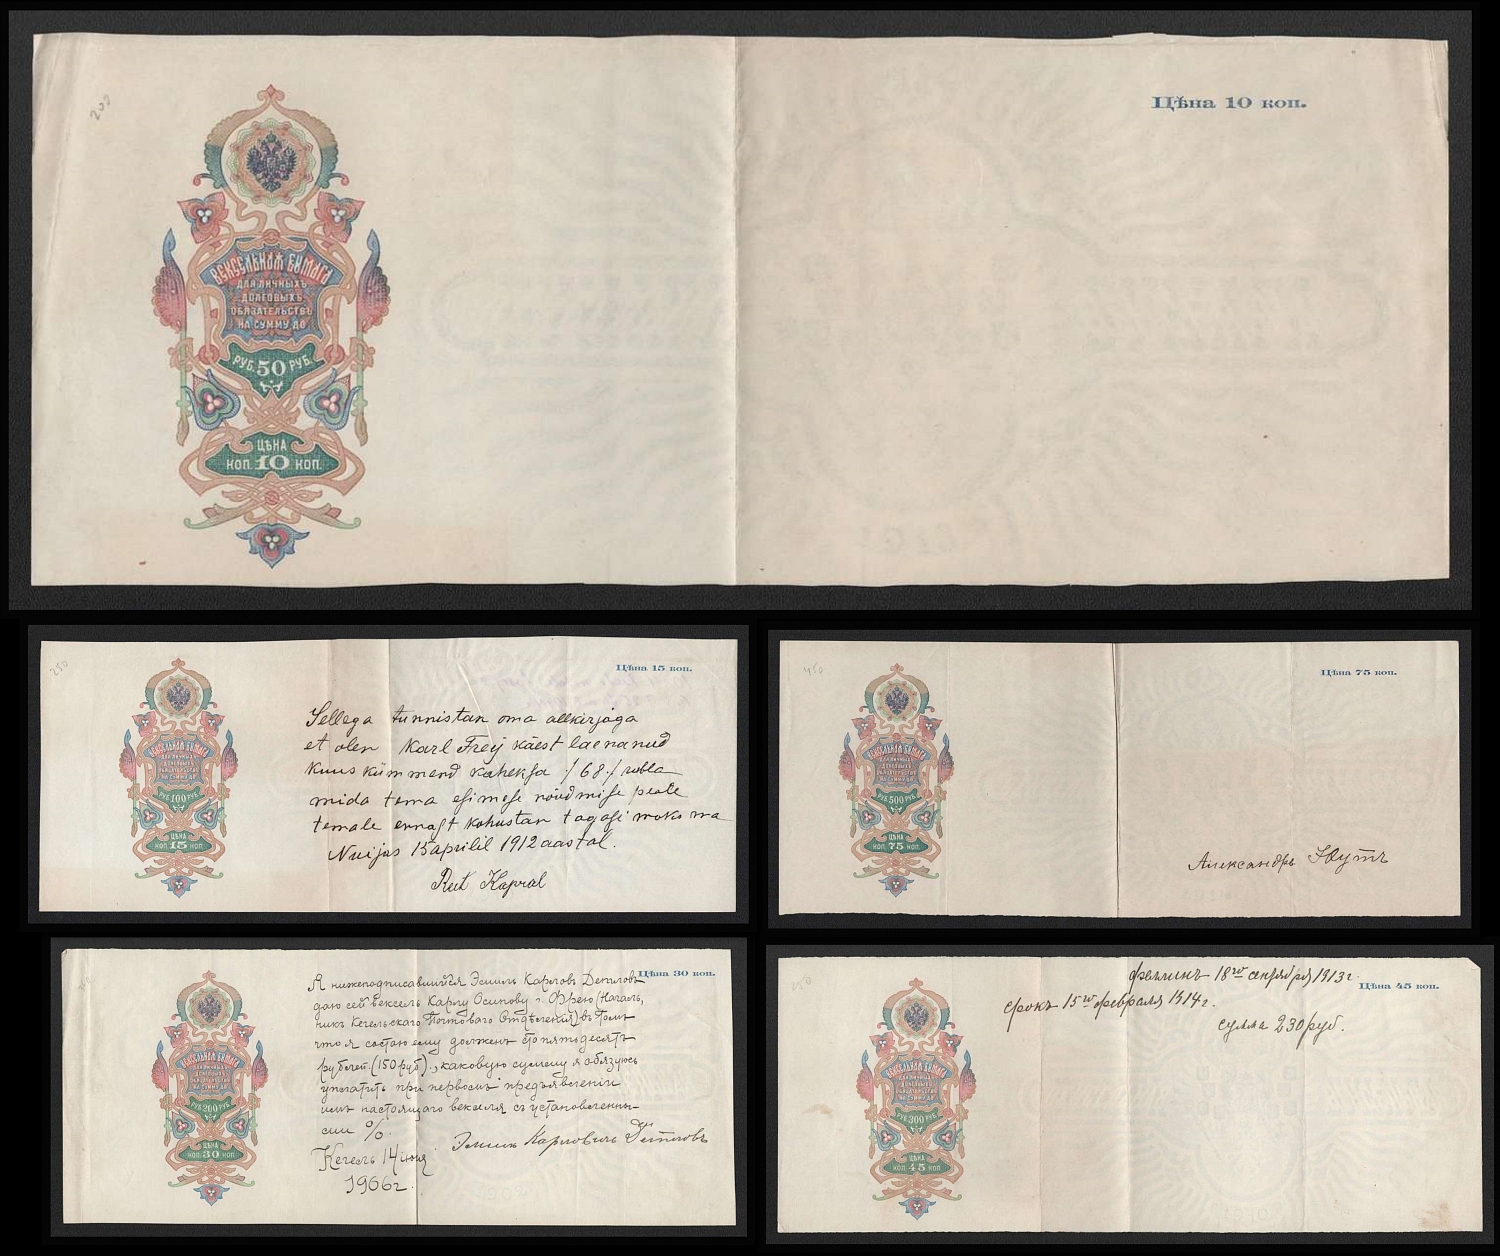 200
Цѣна 10 коп.
ВЕКСЕЛЬНАЯ БУМАГА
ДЛЯ ЛИЧНЫХЪ
ДОЛГОВЫХЪ
ОБЯЗАТЕЛЬСТВЪ
НА СУММУ ДО
РУБ. 50 РУБ.
ЦѢНА
КОП. 10 КОП.
250
Цѣна 15 коп.
ВЕКСЕЛЬНАЯ БУМАГА
ДЛЯ ЛИЧНЫХЪ
ДОЛГОВЫХЪ
ОБЯЗАТЕЛЬСТВЪ
НА СУММУ ДО
РУБ. 100 РУБ.
ЦѢНА
КОП. 15 КОП.
Sellega tunnistan oma allkirjaga
et olen Karl Freij käest laenanud
kuus kümmend kaheksa /68./ rubla
mida tema esimese nõudmise peale
temale ennast kohustan tagasi maksma
Nuijas 15 aprilil 1912 aastal.
Reet Kapral
450
Цѣна 75 коп.
ВЕКСЕЛЬНАЯ БУМАГА
ДЛЯ ЛИЧНЫХЪ
ДОЛГОВЫХЪ
ОБЯЗАТЕЛЬСТВЪ
НА СУММУ ДО
РУБ. 500 РУБ.
ЦѢНА
КОП. 75 КОП.
Александръ
Цѣна 30 коп.
ВЕКСЕЛЬНАЯ БУМАГА
ДЛЯ ЛИЧНЫХЪ
ДОЛГОВЫХЪ
ОБЯЗАТЕЛЬСТВЪ
НА СУММУ ДО
РУБ. 200 РУБ.
ЦѢНА
КОП. 30 КОП.
Я нижеподписавшійся Эмиль Карловъ Детловъ
даю сей вексель Карлу Осипову г. Фрею (Началь,
никъ Кегельскаго Почтоваго Отдѣленія) въ томъ
что я состою ему долженъ сто пятьдесятъ
рублей (150 руб)., каковую сумму я обязуюсь
уплатить при первомъ предъявленіи
имъ настоящаго векселя съ установленны-
ми %.
Эмиль Карловичъ Детловъ
Кегель 14 іюня
1906 г.
Цѣна 45 коп.
ВЕКСЕЛЬНАЯ БУМАГА
ДЛЯ ЛИЧНЫХЪ
ДОЛГОВЫХЪ
ОБЯЗАТЕЛЬСТВЪ
НА СУММУ ДО
РУБ. 300 РУБ.
ЦѢНА
КОП. 45 КОП.
Феллинъ 18го сентября 1913 г.
срокъ 15го февраля 1914 г.
сумма 230 руб.